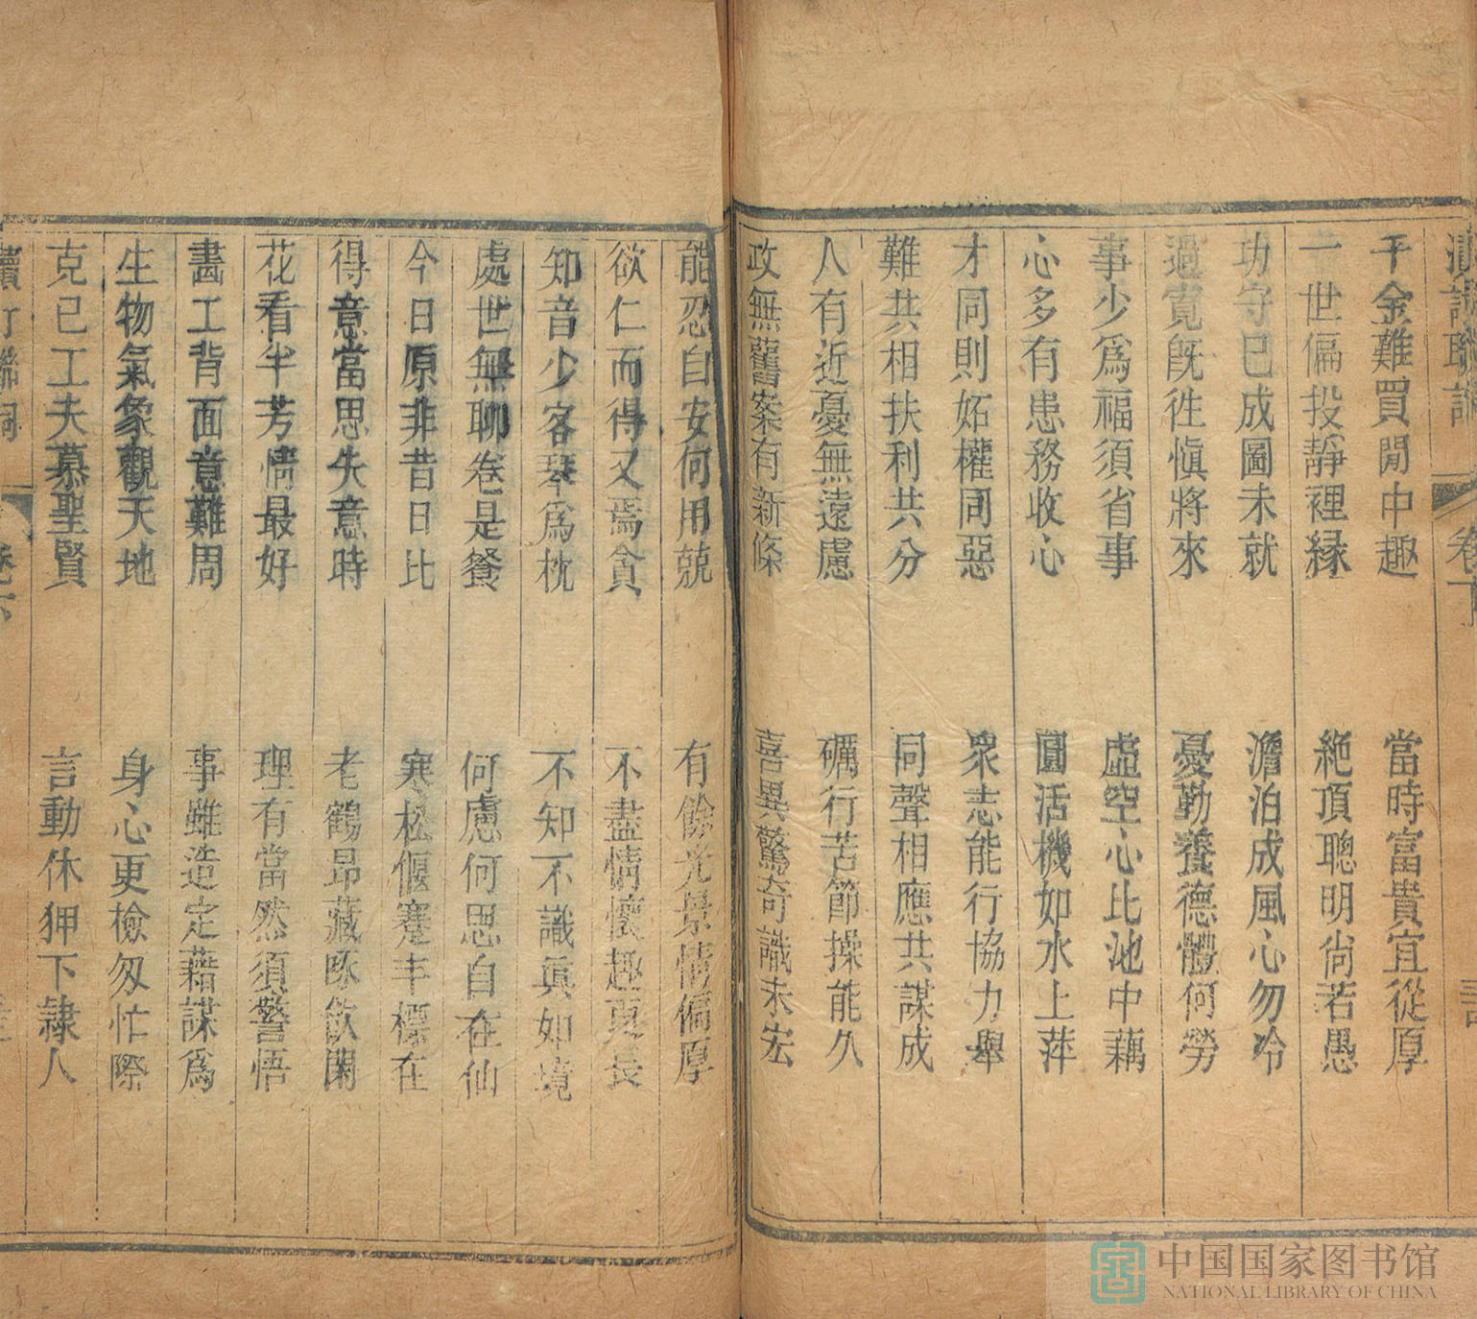 卷下
千金難買閒中趣　當時富貴宜從厚
一世偏投靜裡緣　絶頂聰明尙若愚
功守已成圖未就　澹泊成風心勿冷
過寛旣徃愼將來　憂勤養德體何勞
事少爲福須省事　虛空心比池中藕
心多有患務收心　圓活機如水上萍
才同則妬權同惡　衆志能行協力舉
難共相扶利共分　同聲相應共謀成
人有近憂無遠慮　礪行苦節操能久
政無舊案有新條　喜異驚奇識未宏
能忍自安何用兢　有餘光景情偏厚
欲仁而得又焉貪　不盡情懷趣更長
知音少客琴爲枕　不知不識眞如境
處世無聊卷是餐　何慮何思自在仙
今日原非昔日比　寒松偃蹇丰標在
得意當思失意時　老鶴昻藏啄飮閑
花看半芳情最好　理有當然須警悟
畫工背面意難周　事雖造定藉謀爲
生物氣象觀天地　身心更檢匆忙際
克已工夫慕聖賢　言動休狎下隷人
續訂聯詞
中国国家图书馆
NATIONAL LIBRARY OF CHINA